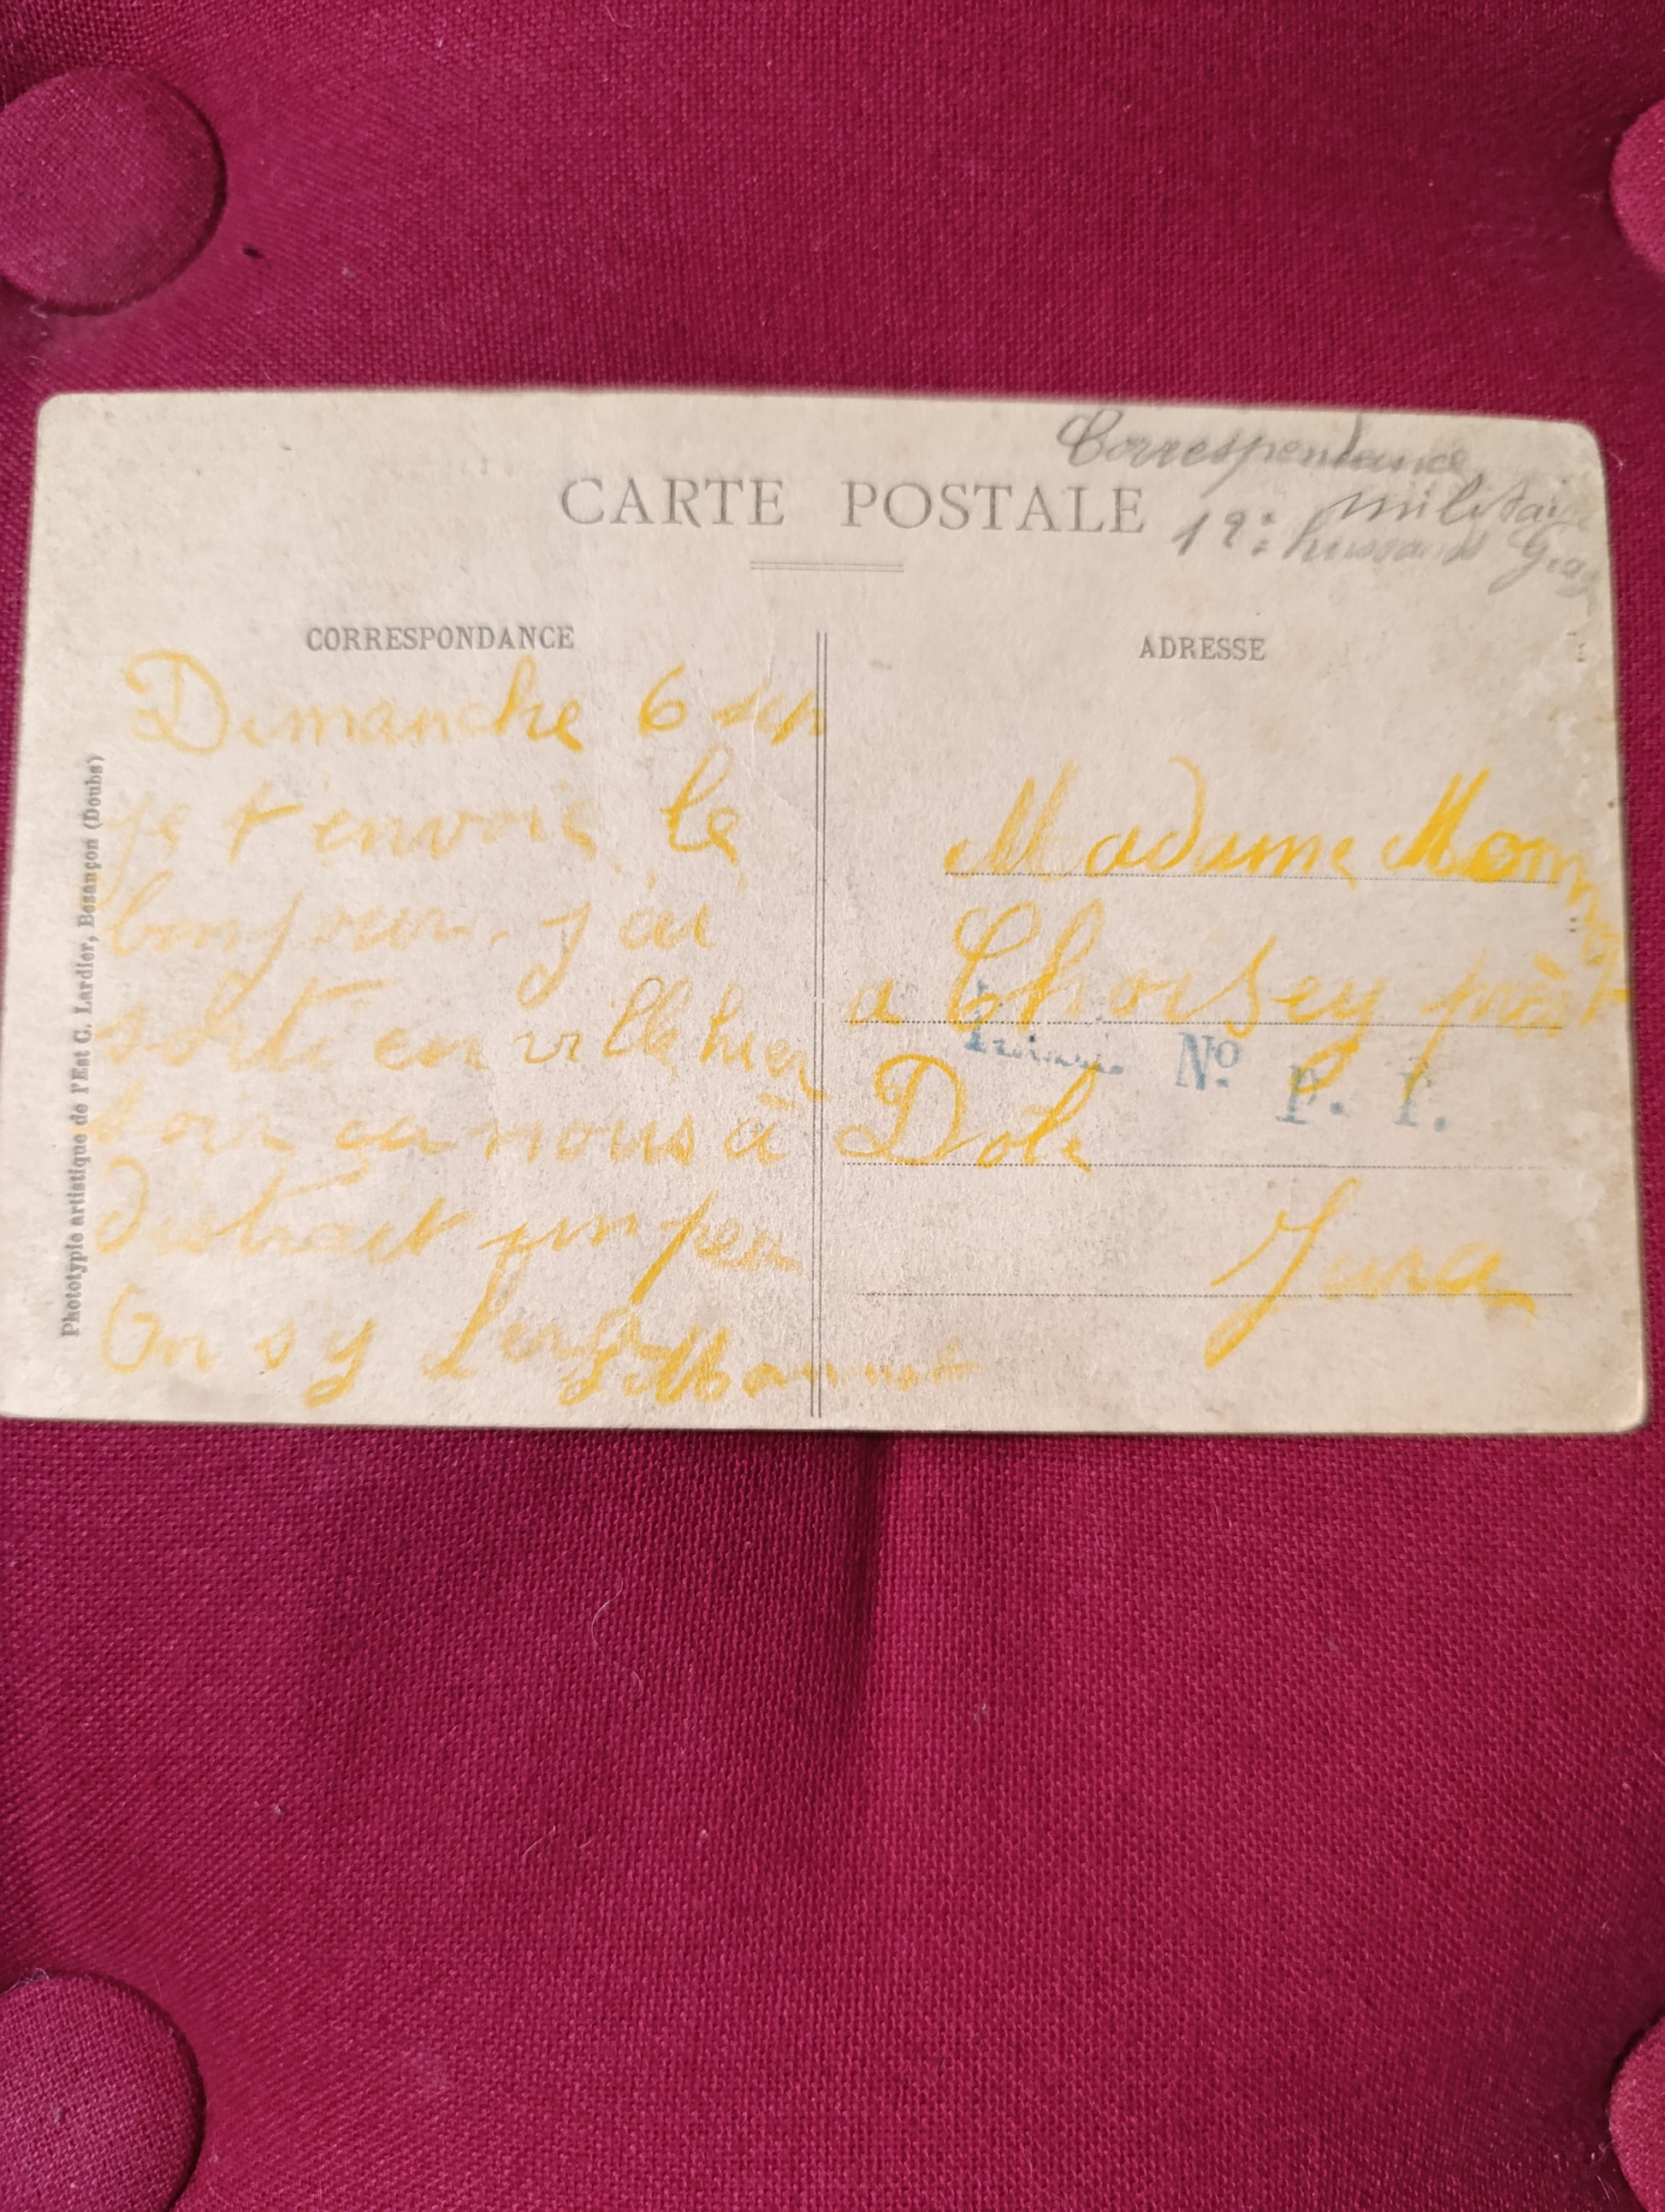 Correspondance
militaire
CARTE POSTALE
12e hussards Gray
CORRESPONDANCE
Dimanche 6 sep
je t'envoie le
bonjour, j'ai
sorti en ville hier
soir ça nous à
distrait un peu
On s y
ADRESSE
Madame
a Choisey près
Dôle
Jura
No P. P.
Phototypie artistique de l'Est C. Lardier, Besançon (Doubs)